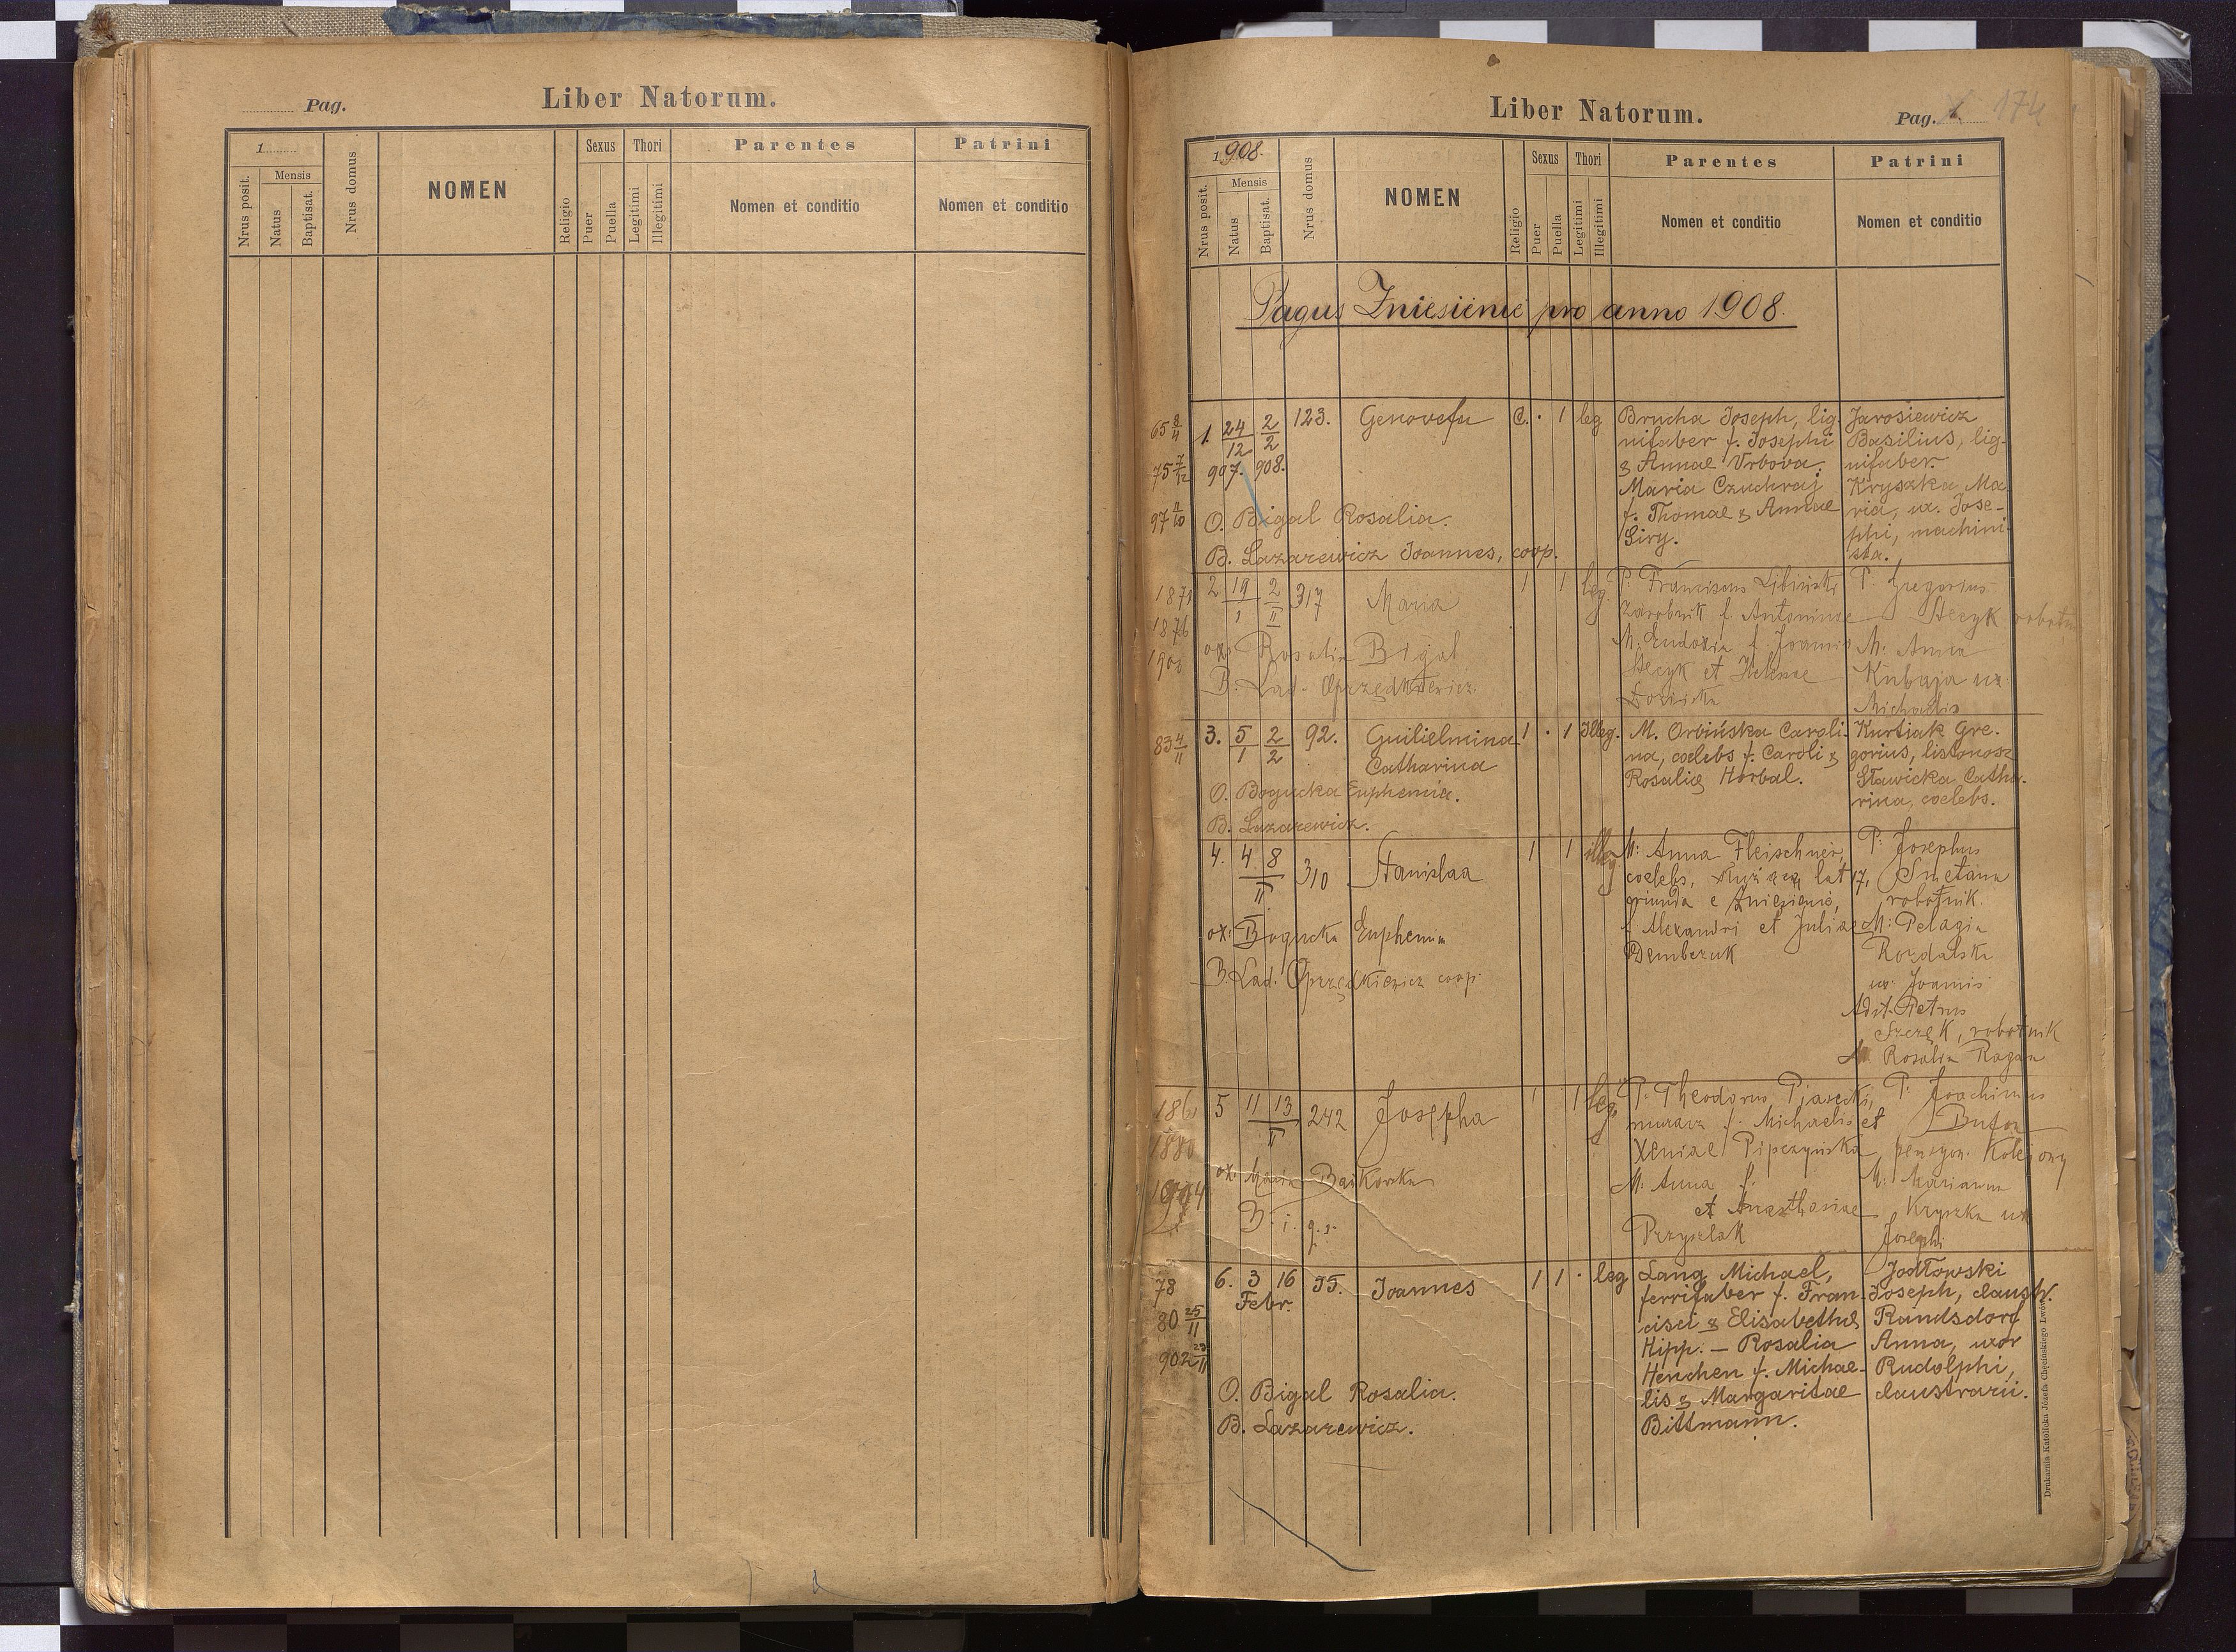 Pag.
Liber Natorum.
1
Nrus posit.
Mensis
Natus
Baptisat.
Nrus domus
NOMEN
Religio
Sexus
Puer
Puella
Thori
Legitimi
Illegitimi
Parentes
Nomen et conditio
Patrini
Nomen et conditio
Liber Natorum.
Pag. 1. 174
1908.
Nrus posit.
Mensis
Natus
Baptisat.
Nrus domus
NOMEN
Religio
Sexus
Puer
Puella
Thori
Legitimi
Illegitimi
Parentes
Nomen et conditio
Patrini
Nomen et conditio
Pagus Zniesienie pro anno 1908.
1. 24/12 2/2 123. Genovefa C. · 1 leg
997. 908.
O. Bigal Rosalia.
B. Lazarewicz Joannes, coop.
Brucha Joseph, lig-
nifaber f. Josephi
& Annae Vrbova.
Maria Czuchraj
f. Thomae & Annae
Siry.
Jarosiewicz
Basilius, lig-
nifaber.
Kryszka Ma
ria, ux. Jose-
phi, machini-
sta.
1871
1876
1906
2 19/1 2/II 317 Maria 1 1 leg.
ox: Rosalia Bigal
B. Lad. Oprzędkiewicz
P: Franciscus Libiński
zarobnik f. Antoninae
M. Eudoxia f. Joannis
Hecyk et Helenae
P: Gregorius
Hecyk
M: Anna
Kubaja ux.
Michaelis
83 4/11
3. 5/1 2/2 92. Guilielmina 1 · 1 Illeg.
Catharina
O. Bogucka Euphemia.
B. Lazarewicz.
M. Orbińska Caroli-
na, coelebs f. Caroli &
Rosalię Horbal.
Kurtiak Gre-
gorius, listonosz
Sławicka Catha-
rina, coelebs.
4. 4 8/II 310 Stanislaa 1 1 illeg.
ox: Bogucka Euphemia
B. Lad. Oprzędkiewicz coop.
M: Anna Fleischner,
coelebs, lat 17,
oriunda e Zniesienie,
f. Alexandri et Juliae
Dembczuk
P: Josephus
Smetana
robotnik.
M: Pelagia
Rozdalska
ux. Joannis
Adst. Petrus
robotnik
Rosalia Ragan
1880
1904
5 11 13/II 242 Josepha 1 1 leg.
ox: Maria Bańkowska
B. i. q. s.
P: Theodorus Piasecki,
murarz f. Michaelis et
Xeniae Pipczyńska
M: Anna f.
et Anasthasiae
Przyszlak
P: Joachimus
Bufan
pensyon. kolejowy
M: Marianna
Kryszka ux
Josephi
78
80 25/11
902 23/11
6. 3 16 Febr. 55. Joannes 1 1 · leg
O. Bigal Rosalia.
B. Lazarewicz.
Lang Michael,
ferrifaber f. Fran-
cisci & Elisabethae
Hipp. — Rosalia
Henchen f. Michae-
lis & Margaritae
Bittmann.
Jodłowski
Joseph, claustr.
Randsdorf
Anna, uxor
Rudolphi,
claustrarii.
Drukarnia Katolicka Józefa Chęcińskiego Lwów